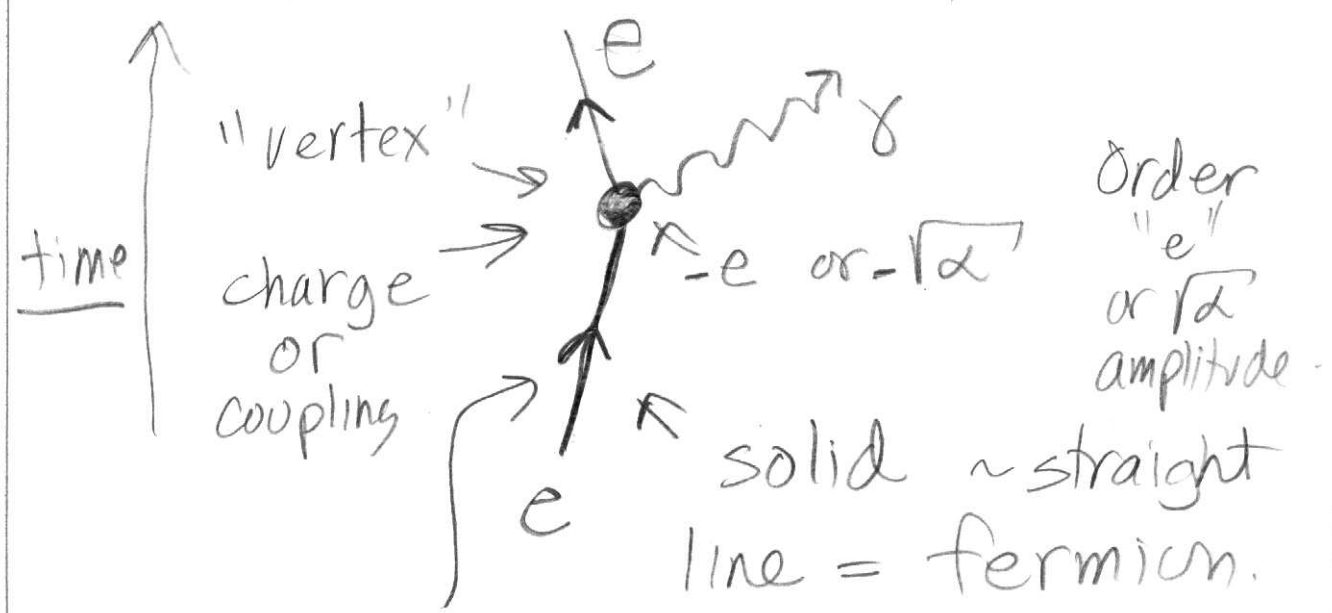 time
"vertex"
charge
or
coupling
e
γ
-e or -√α
e
Order
"e"
or √α
amplitude.
solid ~straight
line = fermion.